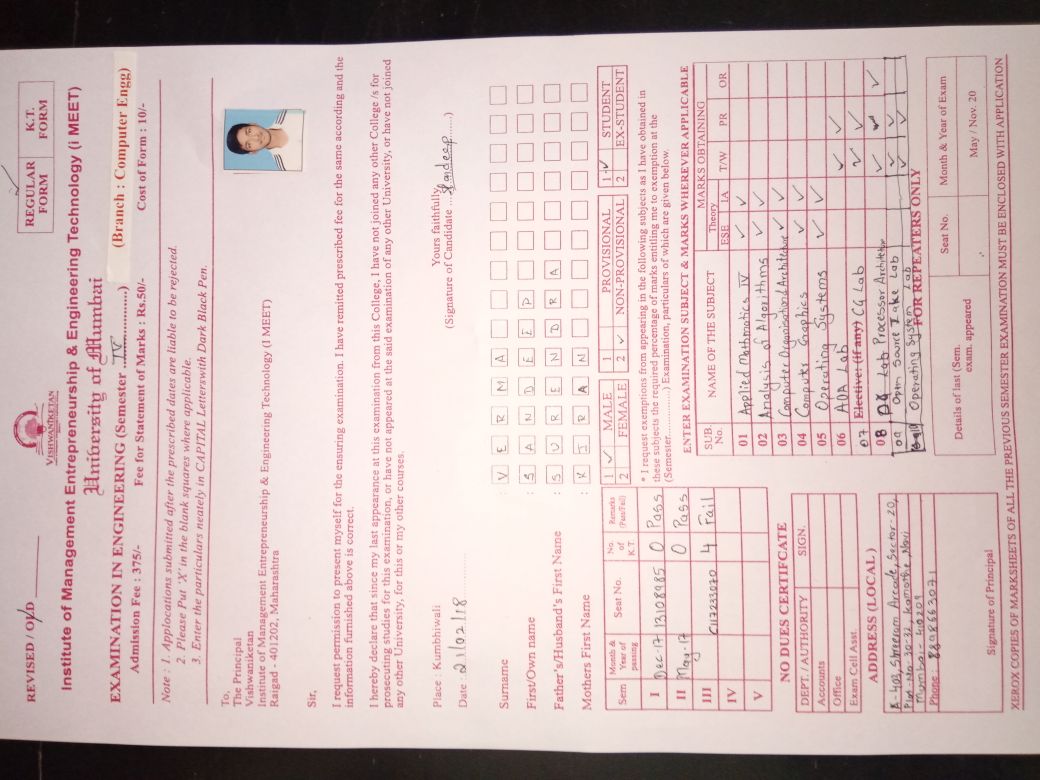 REVISED / OLD
VISHWANIKETAN
REGULAR FORM
K.T. FORM
Institute of Management Entrepreneurship & Engineering Technology (i MEET)
University of Mumbai
EXAMINATION IN ENGINEERING (Semester ...IV...............)
(Branch : Computer Engg)
Admission Fee : 375/- Fee for Statement of Marks : Rs.50/- Cost of Form : 10/-
Note : 1. Applocations submitted after the prescribed dates are liable to be rejected.
2. Please Put 'X' in the blank squares where applicable.
3. Enter the particulars neately in CAPITAL Letterswith Dark Black Pen.
To,
The Principal
Vishwaniketan
Institute of Management Entrepreneurship & Engineering Technology (I MEET)
Raigad - 401202, Maharashtra
Sir,
I request permission to present myself for the ensuring examination. I have remitted prescribed fee for the same according and the
information furnished above is correct.
I hereby declare that since my last appearance at this examination from this College, I have not joined any other College /s for
prosecuting studies for this examination, or have not appeared at the said examination of any other University, or have not joined
any other University, for this or my other courses.
Place : Kumbhiwali
Yours faithfully,
(Signature of Candidate ...Sandeep......)
Date : 21/02/18
Surname : VERMA
First/Own name : SANDEEP
Father's/Husband's First Name : SURENDRA
Mothers First Name : KIRAN
Sem Month & Year of passing Seat No. No. of K.T. Remarks (Pass/Fail)
I Dec-17 13108985 0 Pass
II May-17 0 Pass
III C117233070 4 Fail
IV
V
1 ✓ MALE 1 PROVISIONAL 1 ✓ STUDENT
2 FEMALE 2 ✓ NON-PROVISIONAL 2 EX-STUDENT
* I request exemptions from appearing in the following subjects as I have obtained in
these subjects the required percentage of marks entitling me to exemption at the
(Semester..............) Examination, particulars of which are given below.
ENTER EXAMINATION SUBJECT & MARKS WHEREVER APPLICABLE
SUB. No. NAME OF THE SUBJECT MARKS OBTAINING
Theory ESE IA T/W PR OR
01 Applied Mathmatics IV ✓ ✓
02 Analysis of Algorithms ✓ ✓
03 Computer Organisation & Architecture ✓ ✓
04 Computer Graphics ✓ ✓
05 Operating Systems ✓ ✓
06 AOA Lab ✓ ✓
07 Elective: (if any) CG Lab ✓ ✓
08 Lab Processor Architetur ✓ ✓ ✓
09 Optn Source Lab ✓ ✓
10 Operating System Lab ✓ ✓
NO DUES CERTIFCATE
DEPT. / AUTHORITY SIGN.
Accounts
Office
Exam Cell Asst.
ADDRESS (LOCAL)
A-403, Shreeram Arcade, Sector-20,
Plot-No-30-32, Kamothe, Navi
Mumbai- 410209
Phone : 8898663071
Signature of Principal
FOR REPEATERS ONLY
Details of last (Sem. exam. appeared
Seat No. Month & Year of Exam
May / Nov. 20
XEROX COPIES OF MARKSHEETS OF ALL THE PREVIOUS SEMESTER EXAMINATION MUST BE ENCLOSED WITH APPLICATION